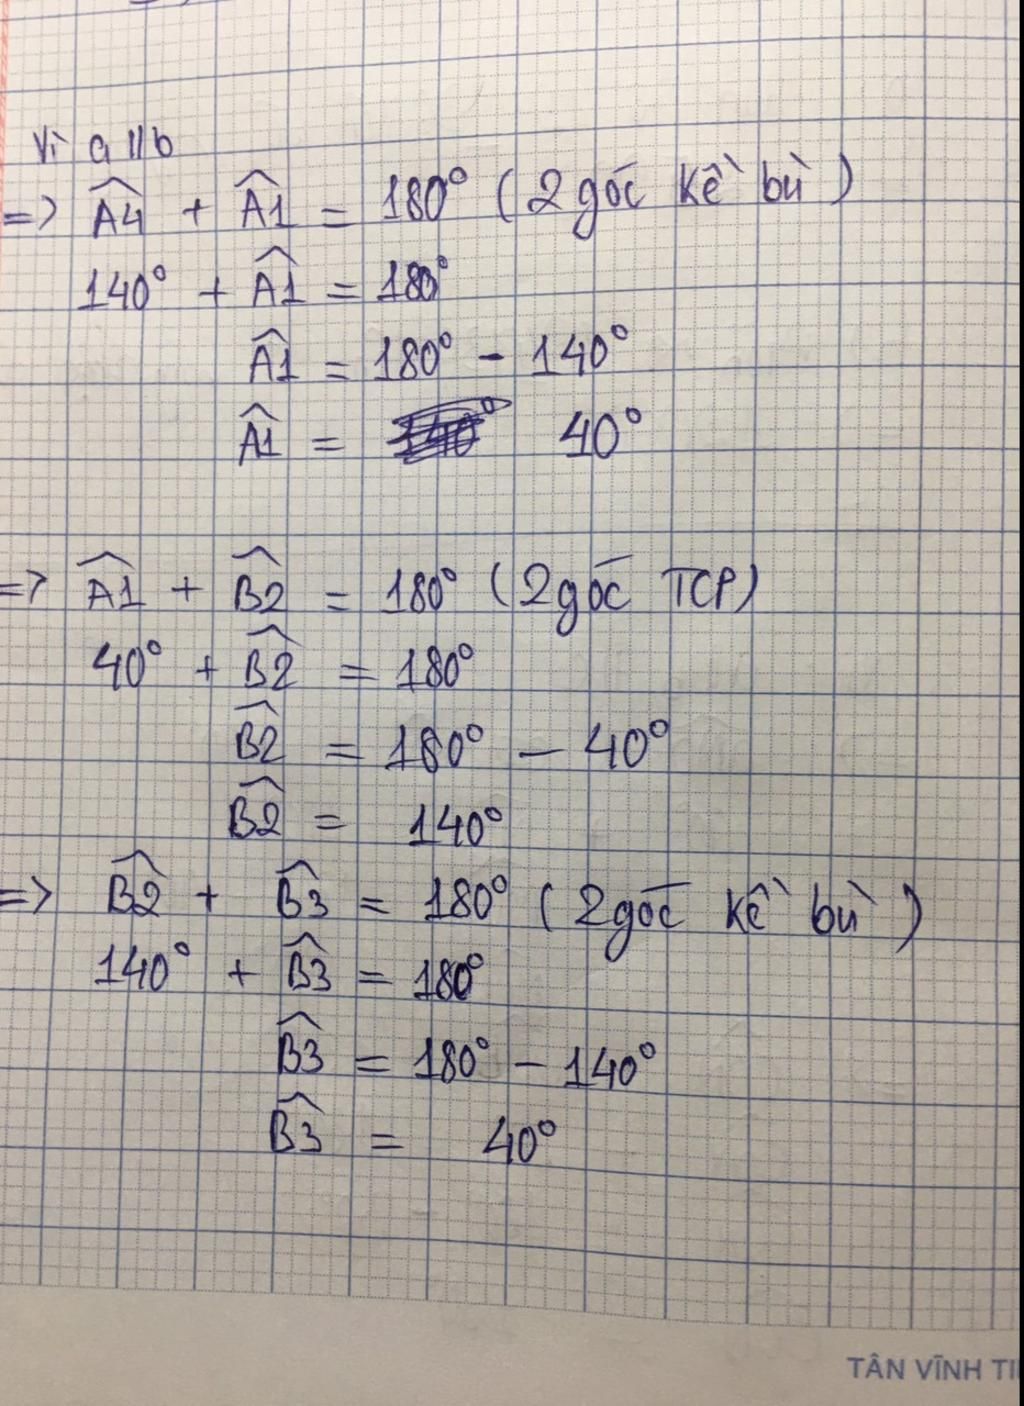 Vì a // b
=> Â4 + Â1 = 180° (2 góc kề bù)
140° + Â1 = 180°
Â1 = 180° - 140°
Â1 = 40°
=> Â1 + B̂2 = 180° (2 góc TCP)
40° + B̂2 = 180°
B̂2 = 180° - 40°
B̂2 = 140°
=> B̂2 + B̂3 = 180° (2 góc kề bù)
140° + B̂3 = 180°
B̂3 = 180° - 140°
B̂3 = 40°
TÂN VĨNH TI